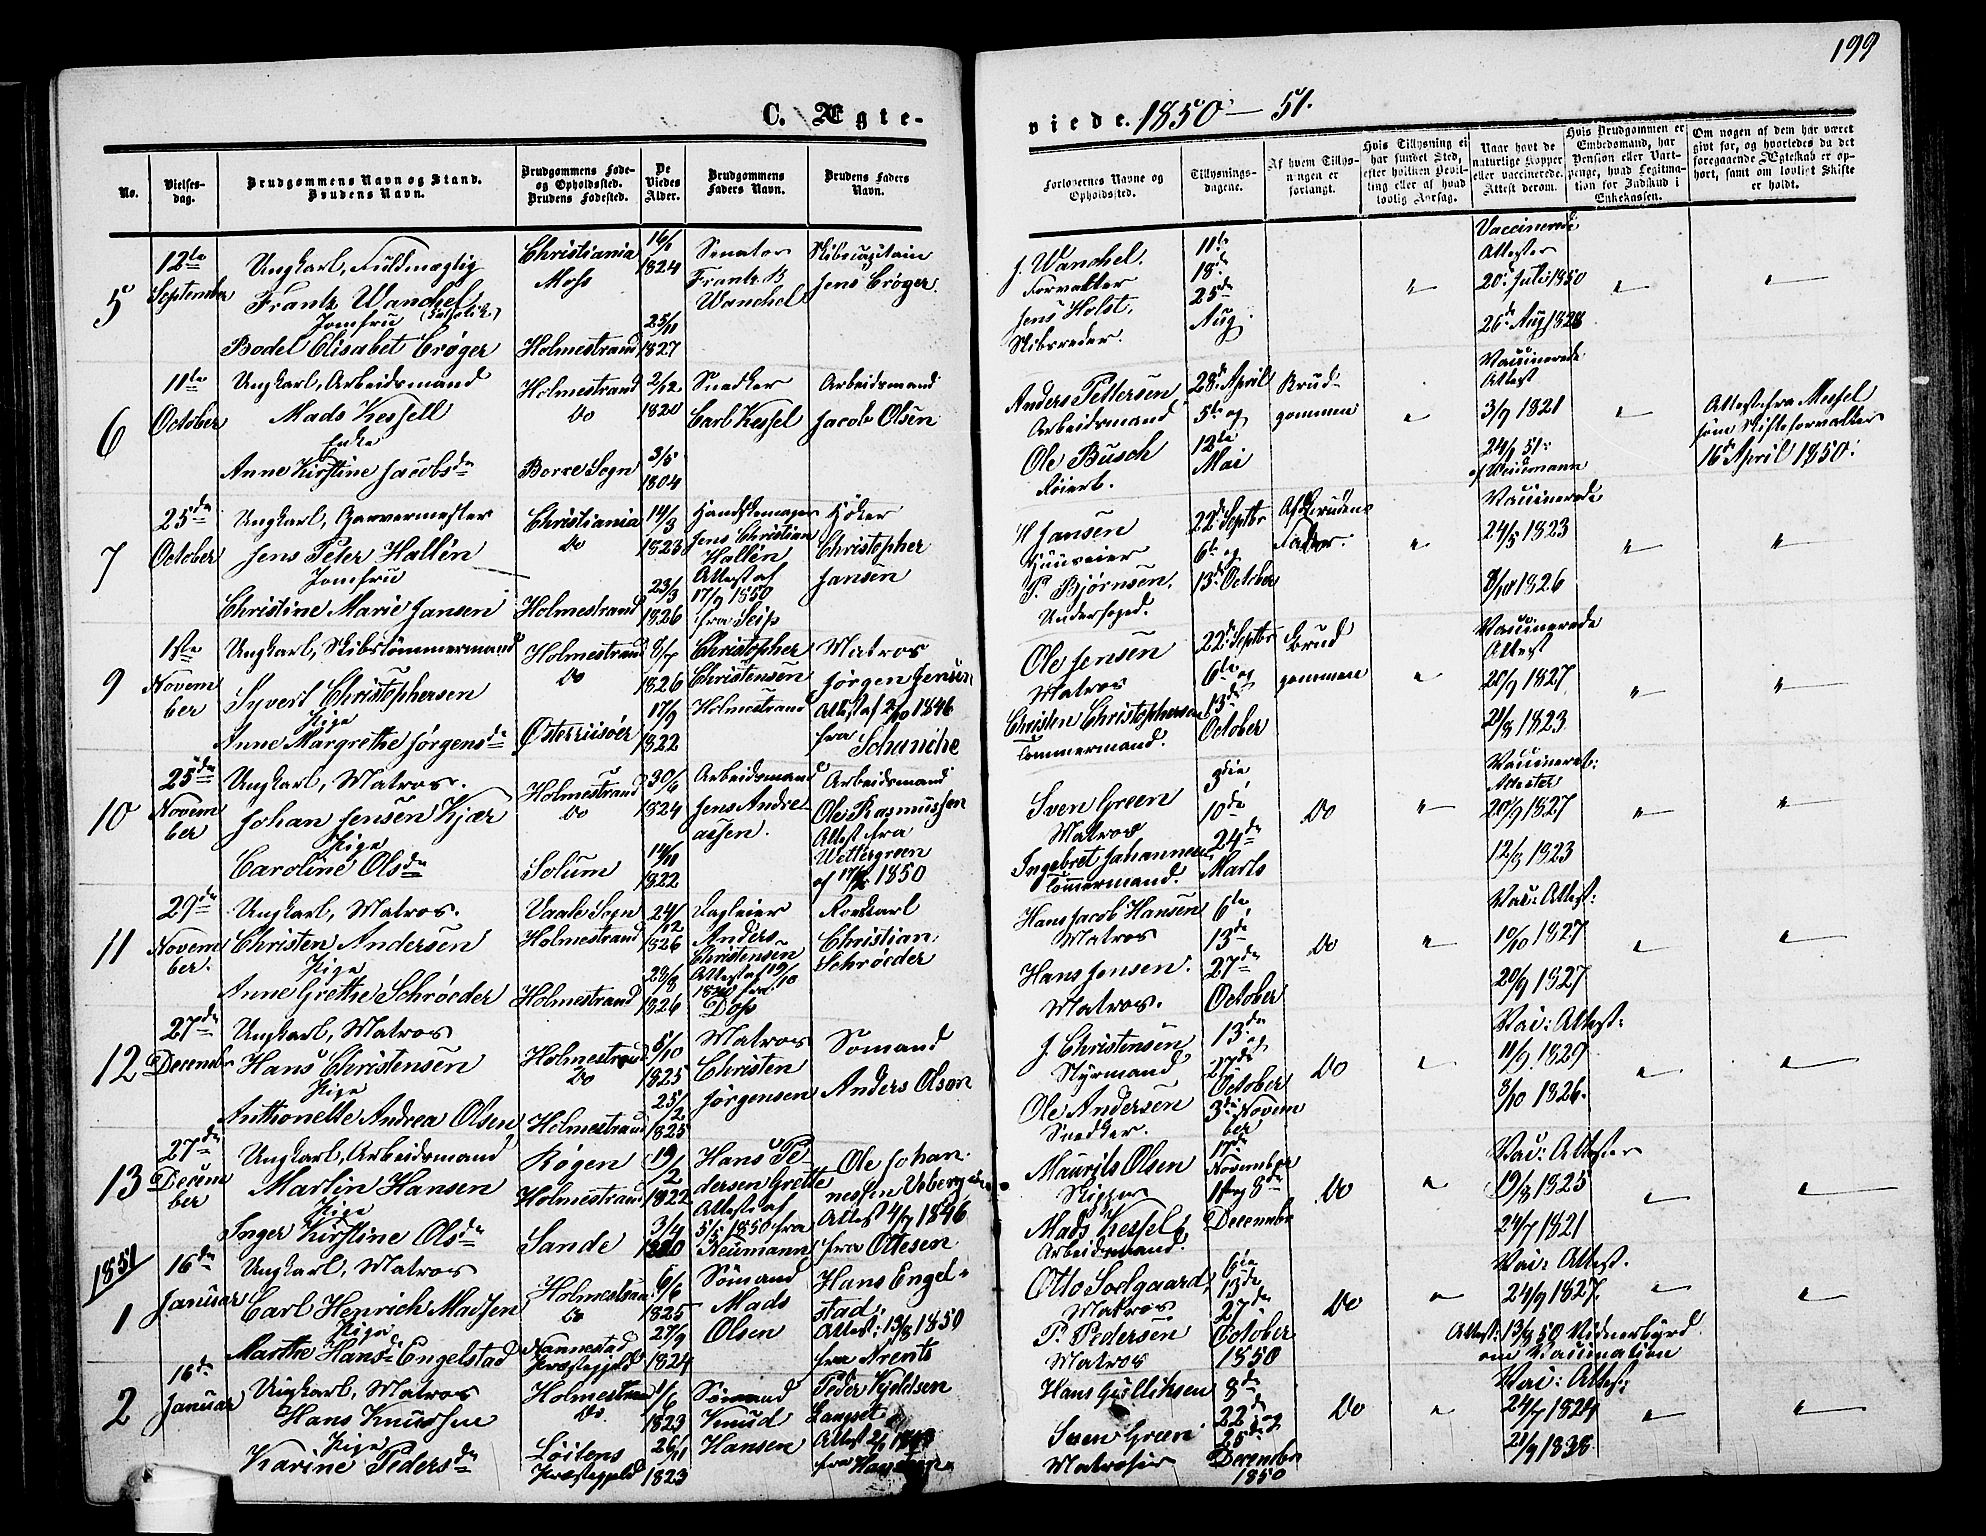 199
C. Ægte-
viede. 1850 — 51.
No.
Vielses-
dag.
Brudgommens Navn og Stand.
Brudens Navn.
Brudgommens Føde-
og Opholdssted.
Brudens Fødested.
De
Viedes
Alder.
Brudgommens
Faders Navn.
Brudens Faders
Navn.
Forlovernes Navne og
Opholdssted.
Tillysnings-
dagene.
Af hvem Tillys-
ningen er
forlangt.
Hvis Tillysning ei
har fundet Sted,
efter hvilken Bevil-
ling eller af hvad
lovlig Aarsag.
Naar havt de
naturlige Kopper
eller vaccinerede.
Attest derom.
Hvis Brudgommen er
Embedsmand, har
Pension eller Vart-
penge, hvad Legitima-
tion for Indskud i
Enkekassen.
Om nogen af dem har været
givt før, og hvorledes da det
foregaaende Ægteskab er op-
hørt, samt om lovligt Skifte
er holdt.
5
12te
September
Ungkarl, Fuldmægtig
Frantz Wanchel
Jomfru
Bodel Elisabet Crøger
Christiania
Moss
Holmestrand
16/1
1824
25/11
1827
Senator
Frantz B
Wanchel
Skibscapitain
Jens Crøger
J. Wanchel.
Forvalter
Jens Holst.
Skibsreder.
11te
18de
25de
Aug.
"
Vaccinerede
Attester
20de Juli 1850
26de Aug 1828
"
"
6
11te
October
Ungkarl, Arbeidsmand
Mads Kessell
Enke
Anne Kirstine Jacobsdn
Holmestrand
Do
Borre Sogn
2/12
1820
3/5
1804
Snedker
Carl Kessel
Arbeidsmand
Jacob Olsen
Anders Pettersen
Arbeidsmand
Ole Busch
Feierb.
28de April
5te og
12te
Mai
Brud-
gommen
"
Vaccinerede
Attest
3/9 1821
24/7 51:
af Neumann
"
Attest fra Messel
som Skifteforvalter
16de April 1850.
7
25de
October
Ungkarl, Garvermester
Jens Peter Hallén
Jomfru
Christine Marie Jansen
Christiania
Do
Holmestrand
14/3
1823
23/3
1826
Handskemager
Jens Christian
Hallén
Attest af
17/9 1850
fra Seip
Høker
Christopher
Jansen
H Jansen
P. Bjørnsen.
Underfoged.
22de Septbr
6te og
13de October
Af Brudens
Fader.
"
Vaccinerede
24/5 1823
9/10 1826
"
"
9
1ste
Novem
ber
Ungkarl, Skibstømmermand
Syvert Christophersen
Pige
Anne Margrethe Jørgensdn
Holmestrand
Do
Østerriisøer
8/7
1826
17/9
1822
Christopher
Christensen
Holmestrand
Matros
Jørgen Jensen
Attest af 2/10 1846
fra
Schanche
Ole Jensen
Matros
Christen Christophersen
Tømmermand.
22de Septbr
6te og
13de
October
Brud
gommen
"
Vaccinerede
Attest
20/9 1827
21/8 1823
"
"
10
25de
Novem
ber
Ungkarl, Matros.
Johan Jensen Kjær
Pige
Caroline Olsdn
Holmestrand
Do
Solum
30/6
1824
14/11
1822
Arbeidsmand
Jens Andre
assen.
Arbeidsmand
Ole Rasmussen
Attest fra
Wettergreen
af 17/2 1850
Sven Green
Matros
Ingebret Johannesen
Tømmermand.
3die
10de
24de
Marts
Do
"
Vaccineret:
Attester
20/9 1827
12/3 1823
"
"
11
29de
Novem
ber.
Ungkarl, Matros.
Christen Andersen
Pige
Anne Grethe Schrøder
Vaale Sogn
Holmestrand
Holmestrand
24/12
1826
28/8
1826
Anders
Christensen
Attest af 19/10
1850 fra
Dop
Christian
Schrøeder
Hans Jacob Hansen
Matros
Hans Jensen.
Matros.
6te
13de
27de
October
Do
"
Vac: Attest:
10/10 1827
20/9 1827
"
"
12
27de
Decembr
Ungkarl, Matros
Hans Christensen
Pige
Anthonette Andrea Olsen
Holmestrand
Do
Holmestrand
5/10
1825
25/2
1825
Matros
Christen
Jørgensen
Sømand
Anders Olsen
J. Christensen
Styrmand
Ole Andersen
Snedker.
13de
27de
October
3de Novem
ber
Do
"
Vac: Attest:
11/9 1829
3/10 1826.
"
"
13
27de
Decem
ber
Ungkarl, Arbeidsmand
Martin Hansen
Pige
Inger Kirstine Olsdn
Røgen
Holmestrand
Sande
19/2
1822
3/4
1820
Hans Pe
dersen Grette
Attest af
5/5 1850 fra
Neumann
Ole Johan
nessen
Attest 4/7 1846
fra Ottesen
Maurits Olsen
Skipper
Mads Kessel
Arbeidsmand.
17de
November
1ste og 8de
Decembr
Do
"
Vac: Attester
19/8 1825
24/7 1821
"
"
1851
1
16de
Januar
Ungkarl, Matros
Carl Henrich Madsen
Pige
Marthe Hansdn Engelstad
Holmestran
Do
Nannestad
Præstegjeld
6/6
1825
27/9
1824
Sømand
Mads
Olsen
Hans Engel-
stad.
Attest: 13/8 1850
fra Arentz
Otto Soelgaard,
Matros
P. Pedersen
Matros
6te
13de
27de
October
1850
Do
"
Vac: Attest.
24/9 1827.
Attest: 13/8 50 Vidnesbyrd
om Vaccination
"
"
2
16de
Januar
Ungkarl, Matros
Hans Knudsen
Pige
Karine Pedersdn
Holmestran
Do.
Løitens
Præstegjeld
1/6
1823
26/11
1823
Sømand
Knud
Hansen
Peder Kjeldsen
Langset
Attest 2/7 1848
fra
Hans Gulliksen
Sven Green
Matroser
8de
22de og
25de
Decembr
1850
Do
"
Vac: Attest:
24/7 1824
21/9 1838.
"
"